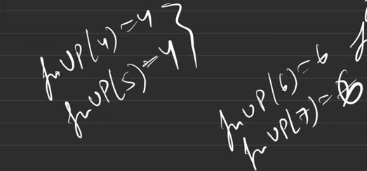 fnUP(4)=4
fnUP(5)=4
fnUP(6)=6
fnUP(7)=6